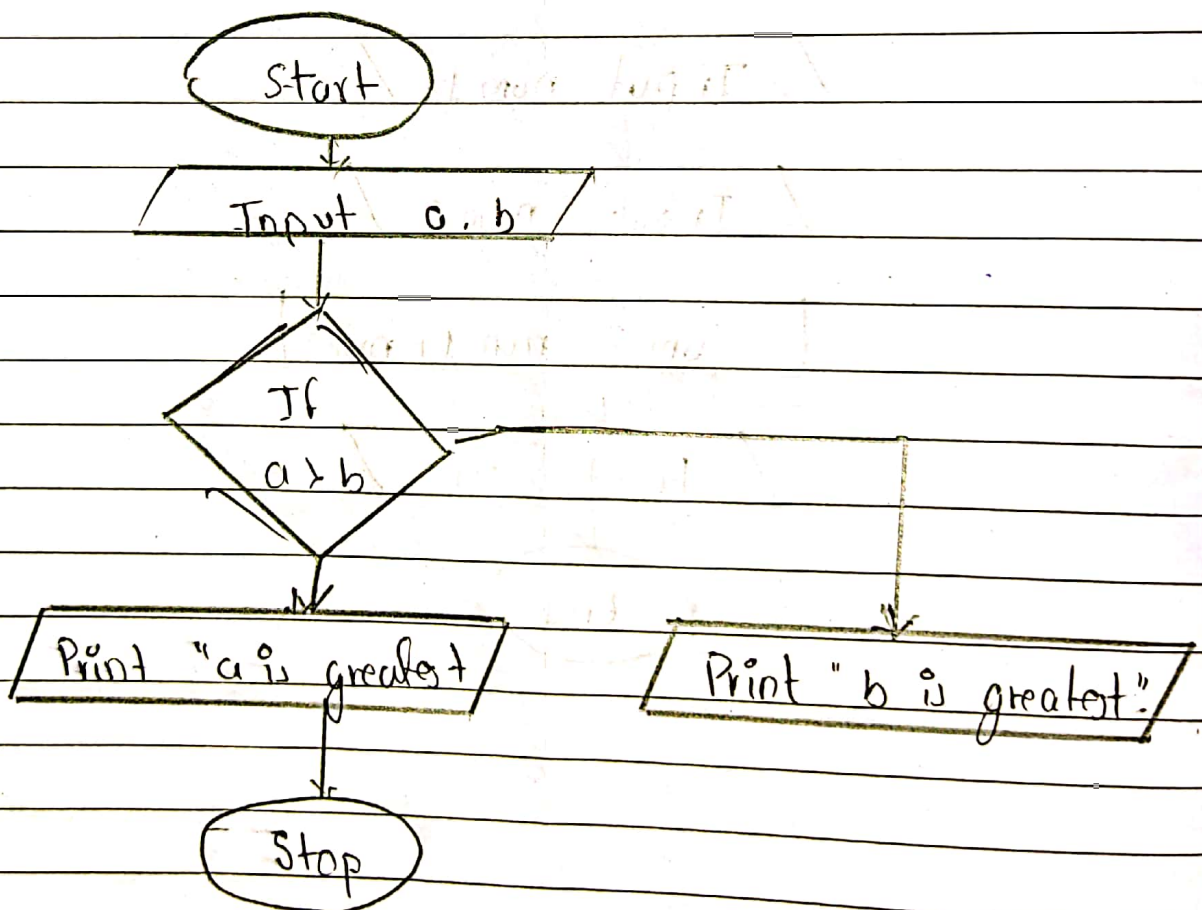 Start
Input a, b
If
a > b
Print "a is greatest
Print "b is greatest".
Stop